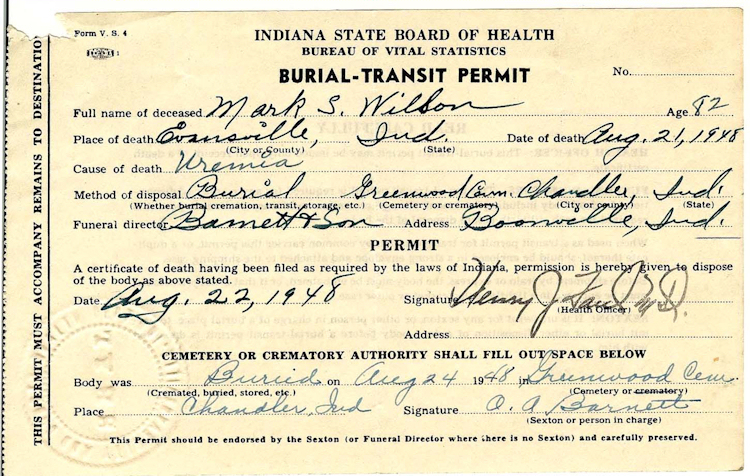 Form V. S. 4
INDIANA STATE BOARD OF HEALTH
BUREAU OF VITAL STATISTICS
BURIAL-TRANSIT PERMIT
No.
Full name of deceased Mark S. Wilson Age 82
Place of death Evansville, Ind. Date of death Aug. 21, 1948
(City or County) (State)
Cause of death Uremia
Method of disposal Burial Greenwood Cem. Chandler, Ind.
(Whether burial cremation, transit, storage, etc.) (Cemetery or crematory) (City or county) (State)
Funeral director Barnett & Son Address Boonville, Ind.
PERMIT
A certificate of death having been filed as required by the laws of Indiana, permission is hereby given to dispose
of the body as above stated.
Date Aug. 22, 1948 Signature Henry J. M.D.
(Health Officer)
Address
CEMETERY OR CREMATORY AUTHORITY SHALL FILL OUT SPACE BELOW
Body was Buried on Aug 24 1948 in Greenwood Cem
(Cremated, buried, stored, etc.) (Cemetery or crematory)
Place Chandler, Ind Signature O. A. Barnett
(Sexton or person in charge)
This Permit should be endorsed by the Sexton (or Funeral Director where there is no Sexton) and carefully preserved.
THIS PERMIT MUST ACCOMPANY REMAINS TO DESTINATION